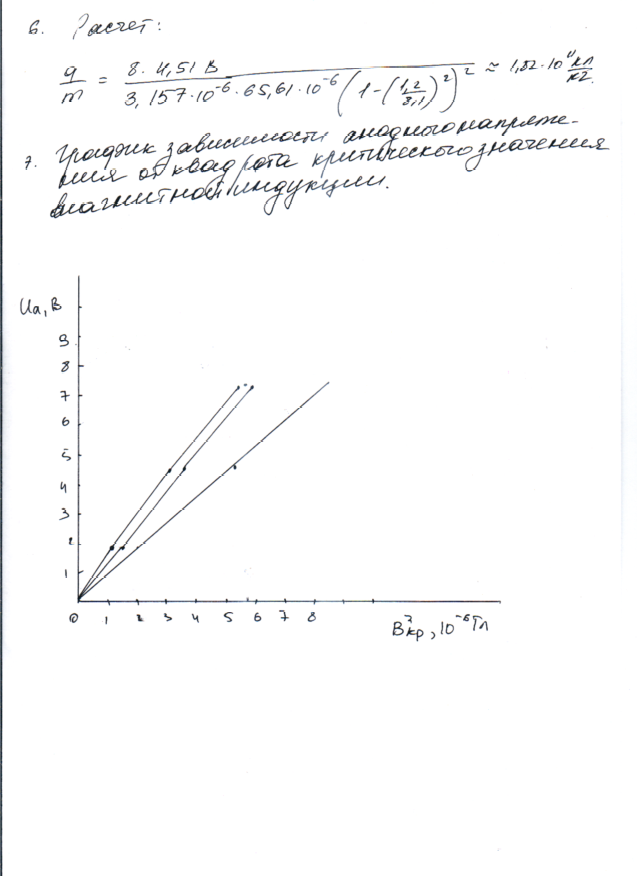 6. Расчет:
q/m = 8·4,51 В / 3,157·10⁻⁶·65,61·10⁻⁶(1-(1,2/3,1)²)² ≈ 1,82·10¹¹ кл/кг.
7. График зависимости анодного напряже-
ния от квадрата критического значения
магнитной индукции.
Ua, В
9
8
7
6
5
4
3
2
1
0 1 2 3 4 5 6 7 8
B²кр, 10⁻⁶Тл